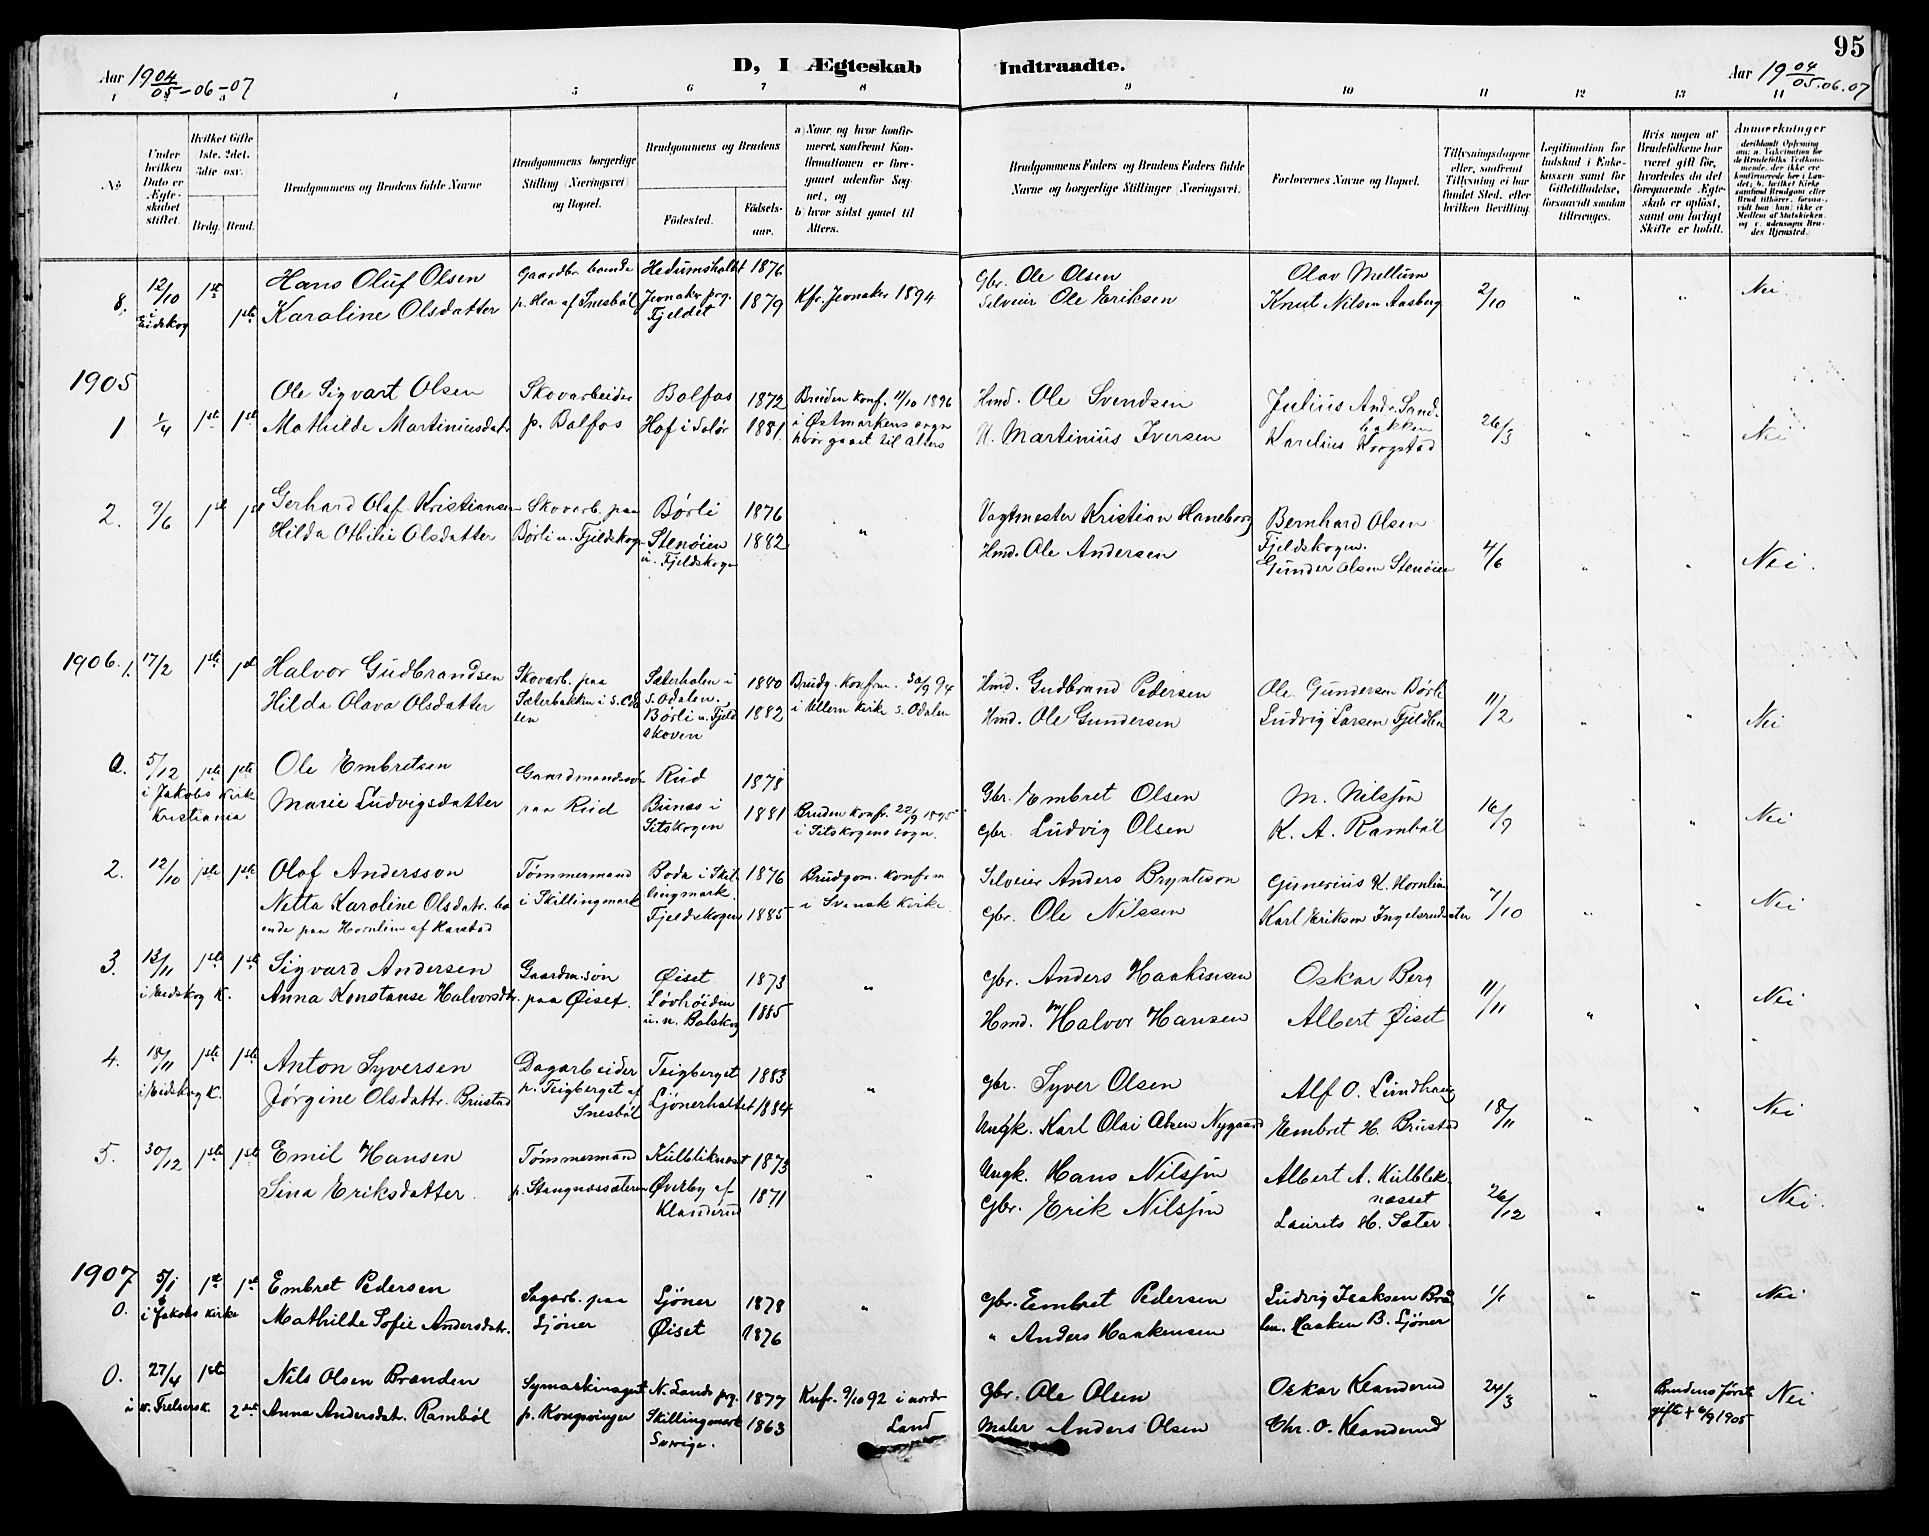 95
Aar 19 04/05-06-07
D, I Ægteskab Indtraadte.
Aar 19 04/05.06.07
1 2 3 4 5 6 7 8 9 10 11 12 13 14
No
Under hvilken Dato er Ægteskabet stiftet.
Hvilket Gifte 1ste, 2det, 3die osv.
Brdg. Brud.
Brudgommens og Brudens fulde Navne
Brudgommens borgerlige Stilling (Næringsvei) og Bopæl.
Brudgommens og Brudens
Fødested.
Fødselsaar.
a) Naar og hvor konfirmeret, samt om Konfirmationen er foregaaet udenfor Sognet, og
b) hvor sidst gaaet til Alters.
Brudgommens Faders og Brudens Faders fulde Navne og borgerlige Stillinger (Næringsvei).
Forlovernes Navne og Bopæl.
Tillysningsdagene eller, saafremt Tillysning ei har fundet Sted, efter hvilken Bevilling.
Legitimation for Indskud i Enkekassen samt for Giftetilladelse, forsaavidt saadan tiltrænges.
Hvis nogen af Brudefolkene har været gift før, hvorledes da det foregaaende Ægteskab er opløst, samt om lovligt Skifte er holdt.
Anmærkninger
8. 12/10 i Eidskog 1ste 1ste
Hans Oluf Olsen Gaardbr. boende Hedumsholtet 1876 Gbr. Ole Olsen Olav Mellum 2/10 " " Nei
Karoline Olsdatter p. Hea af Snesbøl Jevnaker prg. Fjeldet 1879 Kfr. Jevnaker 1894 Selveier Ole Eriksen Knut Nilsen Aasberg
1905
1 1/4 1ste 1ste
Ole Sigvart Olsen Skovarbeider Bolfos 1872 Bruden konf. 11/10 1896 Hmd. Ole Svendsen Julius Andr. Sandbakken 26/3 " " Nei
Mathilde Martiniusdatr. p. Bolfos Hof i Solør 1881 i Østmarkens sogn hvor gaaet til alters Martinius Iversen Karelius Krogstad
2. 9/6 1ste 1ste
Gerhard Olaf Kristiansen Skovarb. paa Børli 1876 " Vagtmester Kristian Haneborg Bernhard Olsen Fjeldskogen. 4/6 " " Nei.
Hilda Othilie Olsdatter Børli u. Fjeldskogn Stenøien u. Fjeldskogn 1882 Hmd. Ole Andersen Gunder Olsen Stenøien
1906. 1. 17/2 1ste 1ste
Halvor Gudbrandsen Skovarb. paa Sæterhalen i S. Odalen. 1880 Brudg. konfrm. 30/9 94 Hmd. Gudbrand Pedersen Ole Gundersen Børli 11/2 " " Nei
Hilda Olava Olsdatter Sæterbakken i S. Odalen Børli u. Fjeldskoven 1882 i Ullern Kirke S. Odalen Hmd. Ole Gundersen Ludvig Larsen
0. 5/12 1ste 1ste i Jakobs Kirk Kristiania
Ole Embretsen Gaardmandssøn Rud 1878 Gbr. Embret Olsen M. Nilssøn 16/9 " " Nei
Marie Ludvigsdatter paa Rud Bunæs i Setskogen 1881 Bruden konf. 22/9 1895 i Setskogens sogn. Gbr. Ludvig Olsen K. A. Rambøl
2. 12/10 1ste 1ste
Olof Andersson Tømmermand Boda i Skillingmark. 1876 Brudgom. konfrm Selveier Anders Bryntesson Gunerius K. Hornlien 7/10 " " Nei
Netta Karoline Olsdatr. boende paa Hornlien af Karstad i Skillingmark Fjeldskogen 1885 i Svensk Kirke. Gbr. Ole Nilssen Karl Eriksen Ingelsrudsæter
3. 13/11 i Eidskog K. 1ste 1ste
Sigvard Andersen Gaardm.søn Øiset 1873 " Gbr. Anders Haakensen Oskar Berg 11/11 " " Nei
Anna Konstanse Halvorsdtr. paa Øiset. Løvhøiden u. n. Bolskog 1885 Hmd. Halvor Hansen Albert Øiset
4. 18/11 i Eidskog K. 1ste 1ste
Anton Syversen Dagarbeider Teigberget 1883 " Gbr. Syver Olsen Alf O. Lundhaug 18/11 " " Nei
Jørgine Olsdattr. Brustad p. Teigberget af Snesbøl Ljønerholtet 1884 Ungk. Karl Olai Olsen Nygaard Embret H. Brustad
5. 30/12 1ste 1ste
Emil Hansen Tømmermand Kulbliknæst 1873 " Ungk. Hans Nilssøn Albert A. Kulbliknæsset 26/12 " " Nei.
Sina Eriksdatter. p. Stangnæssæteren Øverby af Klanderud 1871 Gbr. Erik Nilssøn Laurets H. Sæter.
1907 0. 5/1 i Jakobs Kirke 1ste 1ste
Embret Pedersen Sagarb. paa Ljøner 1878 " Gbr. Embret Pedersen Ludvig Isaksen 1/1 " " Nei
Mathilde Sofie Andersdatr. Ljøner Øiset 1876 " Anders Haakensen Haaken B. Ljøner
0. 27/4 i v. Frelsers K. 1ste 2det
Nils Olsen Branden Symaskinagent N. Lands prg. 1877 Knfr. 9/10 92 i nordr Land Gbr. Ole Olsen Oskar Klanderud 24/3 " Brudens første gifte + 6/9 1905 Nei
Anna Andersdat. Rambøl p. Kongsvinger Skillingmark Sverige. 1863 Maler Anders Olsen Chr. O. Klanderud